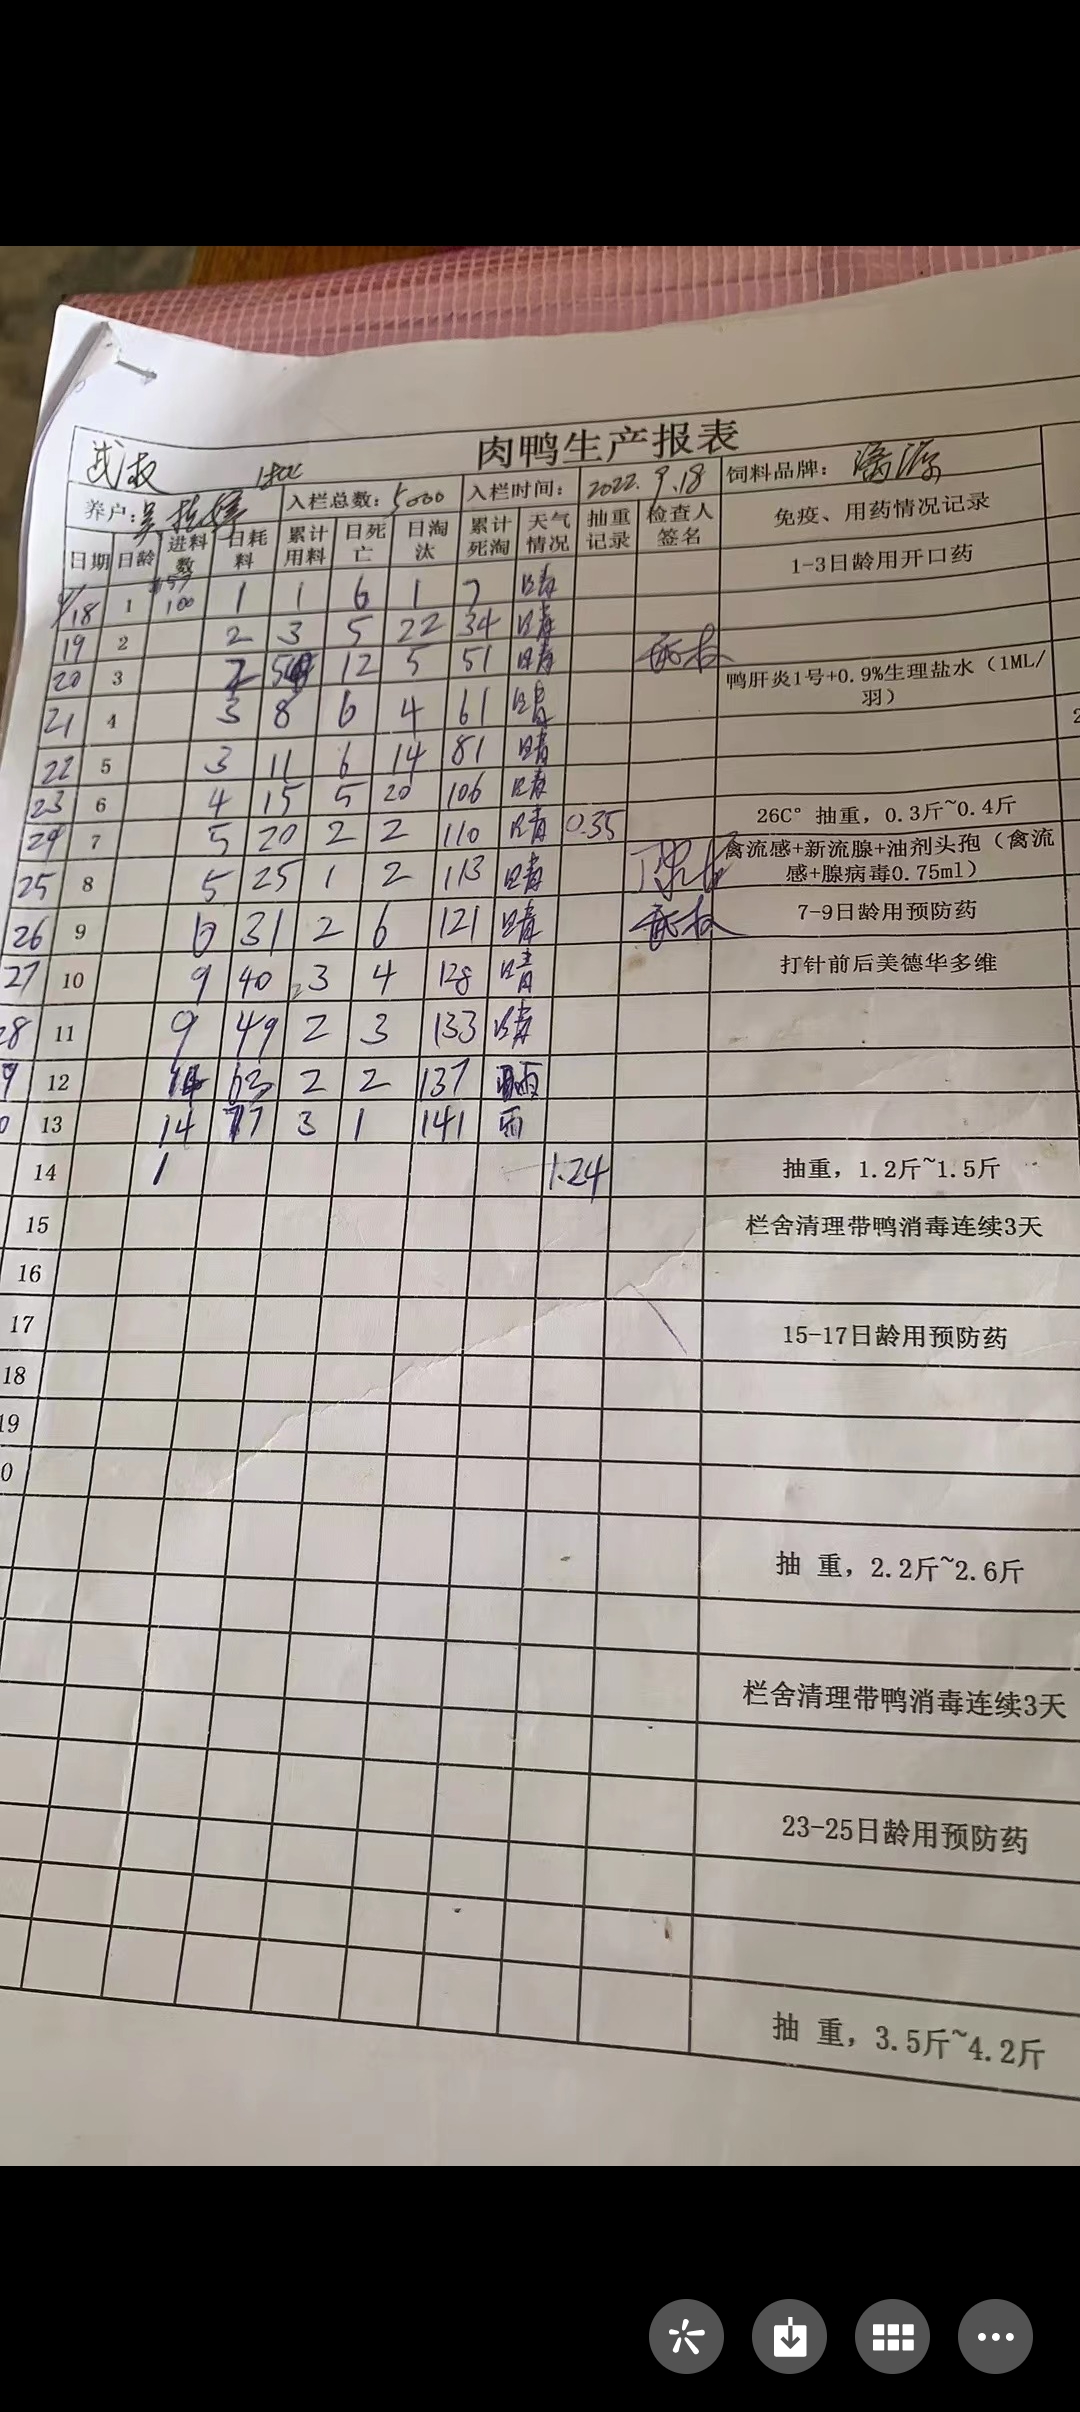 肉鸭生产报表
养户: 入栏总数: 5000 入栏时间: 2022.9.18 饲料品牌:
日期 日龄 进料数 日耗料 累计用料 日死亡 日淘汰 累计死淘 天气情况 抽重记录 检查人签名 免疫、用药情况记录
9/18 1 100 1 1 6 1 7 晴 1-3日龄用开口药
19 2 2 3 5 22 34 晴
20 3 2 5 12 5 51 晴
21 4 3 8 6 4 61 晴 鸭肝炎1号+0.9%生理盐水（1ML/羽）
22 5 3 11 6 14 81 晴
23 6 4 15 5 20 106 晴
24 7 5 20 2 2 110 晴 0.35 26C° 抽重，0.3斤~0.4斤
25 8 5 25 1 2 113 晴 禽流感+新流腺+油剂头孢（禽流感+腺病毒0.75ml）
26 9 6 31 2 6 121 晴 7-9日龄用预防药
27 10 9 40 3 4 128 晴 打针前后美德华多维
28 11 9 49 2 3 133 晴
9 12 14 63 2 2 137 雨
0 13 14 77 3 1 141 雨
14 1 1.24 抽重，1.2斤~1.5斤
15 栏舍清理带鸭消毒连续3天
16
17 15-17日龄用预防药
18
19
0
抽 重，2.2斤~2.6斤
栏舍清理带鸭消毒连续3天
23-25日龄用预防药
抽 重，3.5斤~4.2斤